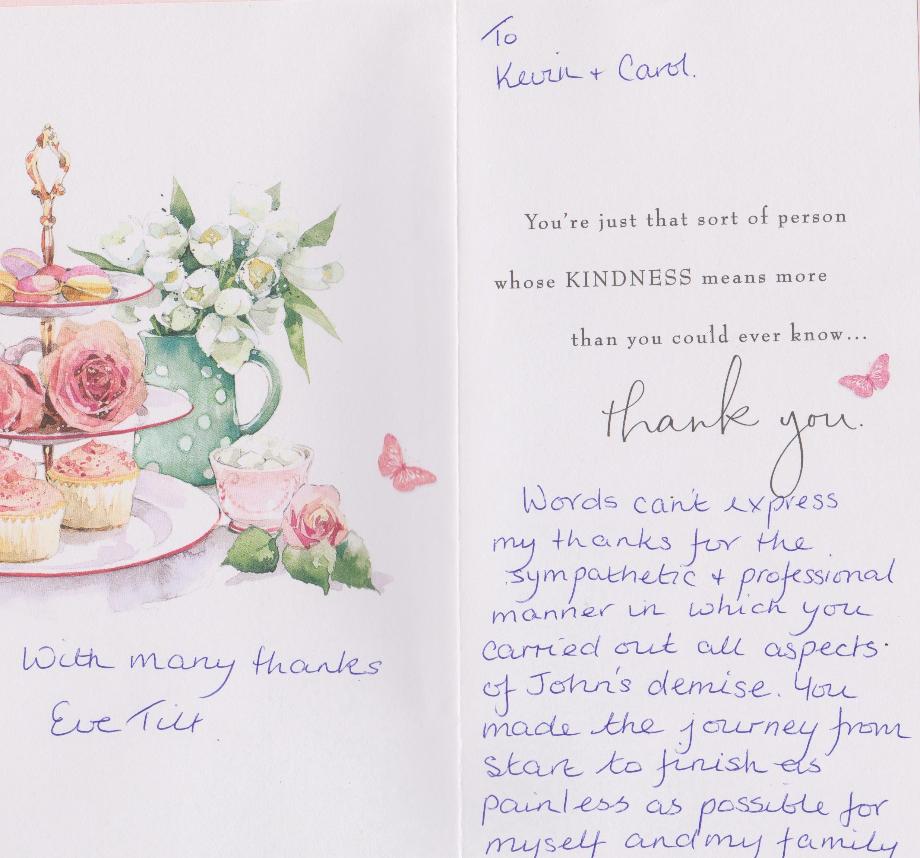 To
Kevin + Carol.
You're just that sort of person
whose KINDNESS means more
than you could ever know...
thank you.
Words can't express
my thanks for the
sympathetic + professional
manner in which you
carried out all aspects
of John's demise. You
made the journey from
start to finish as
painless as possible for
myself and my family
With many thanks
Eve Tilt